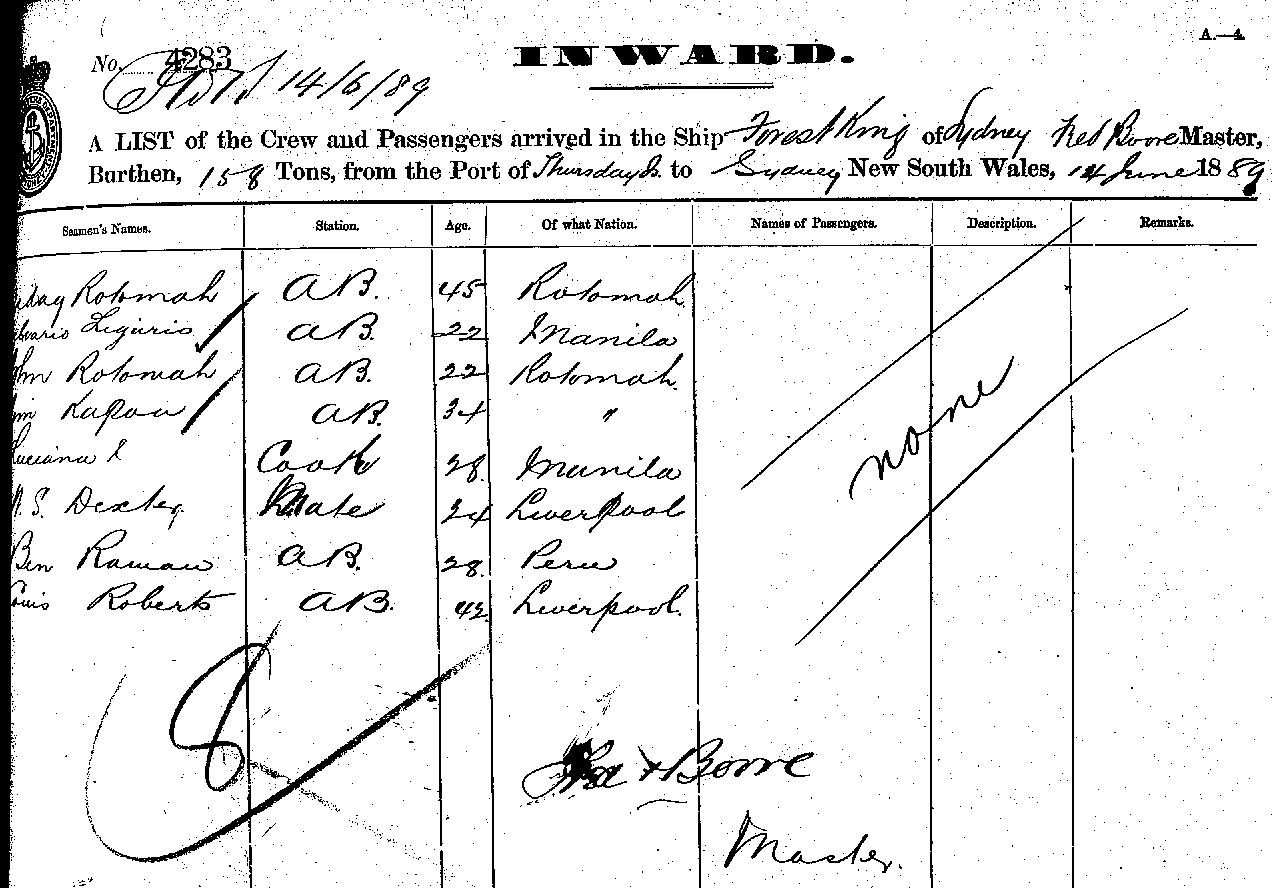 A.—4.
INWARD.
No. 4283
14/6/89
A LIST of the Crew and Passengers arrived in the Ship Forest King of Sydney Master,
Burthen, 158 Tons, from the Port of Thursday Is. to Sydney New South Wales, 14 June 1889
Seamen's Names. Station. Age. Of what Nation. Names of Passengers. Description. Remarks.
Rotomah A B. 45 Rotomah.
Liguris A B. 22 Manila
Rotomah A B. 22 Rotomah.
Kapau A B. 34 "
Luciana Cook 28. Manila
S. Dexter Mate 24 Liverpool
Ben Raman A B. 28. Peru
Roberts A B. 42 Liverpool.
none
8
Master.